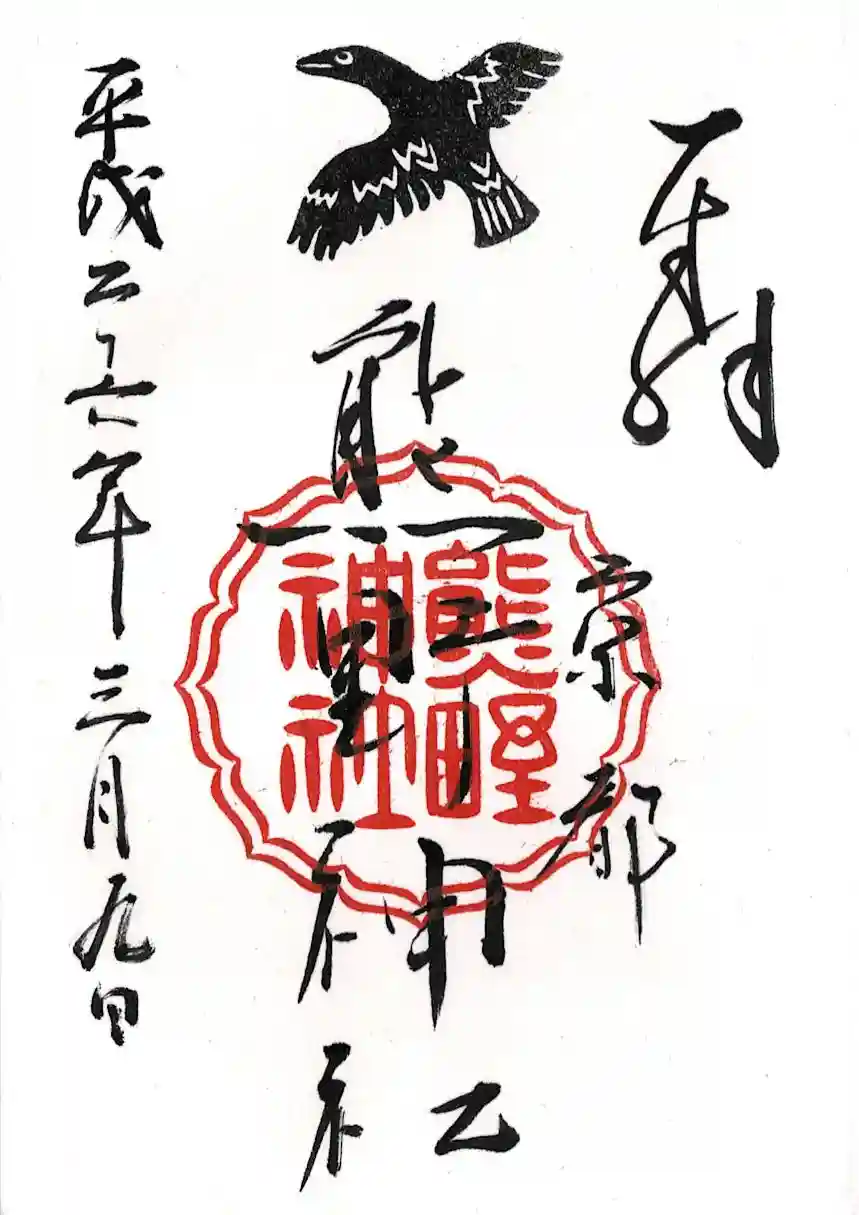 奉拝
京都
熊野神社
熊野
神社
平成二十六年三月九日